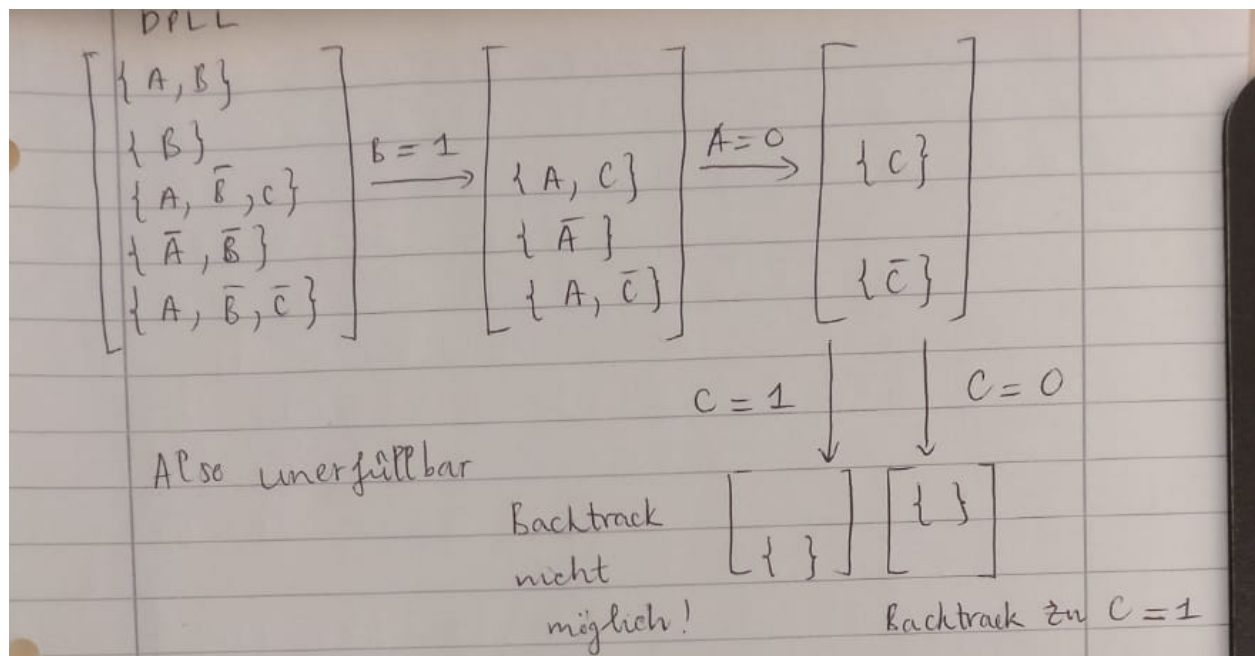 DPLL
{ A, B }
{ B }
{ A, B̅, C }
{ A̅, B̅ }
{ A, B̅, C̅ }
B = 1
{ A, C }
{ A̅ }
{ A, C̅ }
A = 0
{ C }
{ C̅ }
C = 1
C = 0
Also unerfüllbar
{ }
{ }
Backtrack
nicht
möglich!
Backtrack zu C = 1